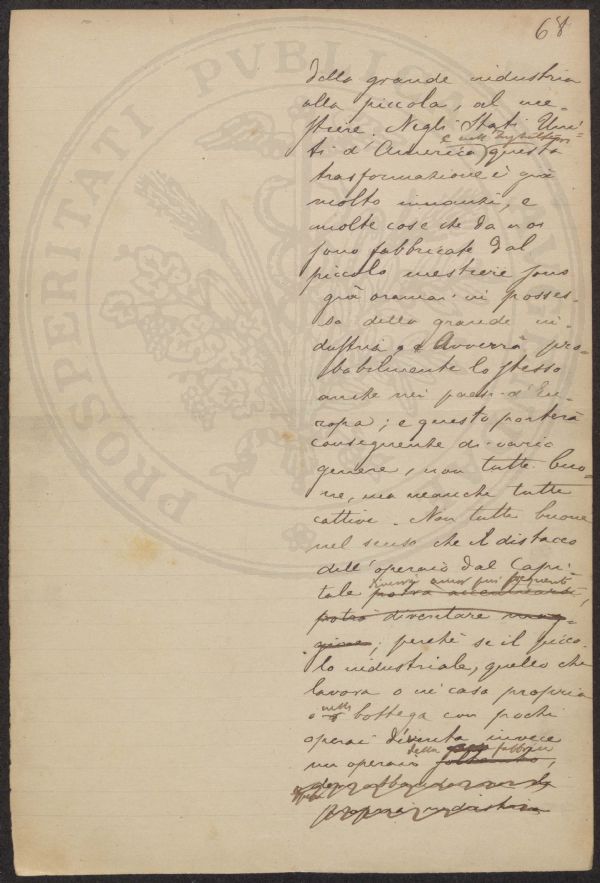 68
della grande industria
alla piccola, al me-
stiere. Negli Stati Uni-
e nell'Inghilterra
ti d'America questa
trasformazione è già
molto innanzi, e
molte cose che da noi
sono fabbricate dal
piccolo mestiere sono
già oramai in posses-
so della grande in-
dustria, e Avverrà pro-
babilmente lo stesso
anche nei paesi d'Eu-
ropa; e questo porterà
conseguente di vario
genere, non tutte buo-
ne, ma neanche tutte
cattive. Non tutte buone
nel senso che il distacco
dell'operaio dal Capi-
ancor più frequente
tale potrà accentuarsi,
potrà diventare mag-
giore; perchè se il picco-
lo industriale, quello che
lavora o in casa propria
nella
o bottega con pochi
operai diventa invece
della fabbrica
un operaio soltanto,
propria industria
PROSPERITATI PVBLICAE